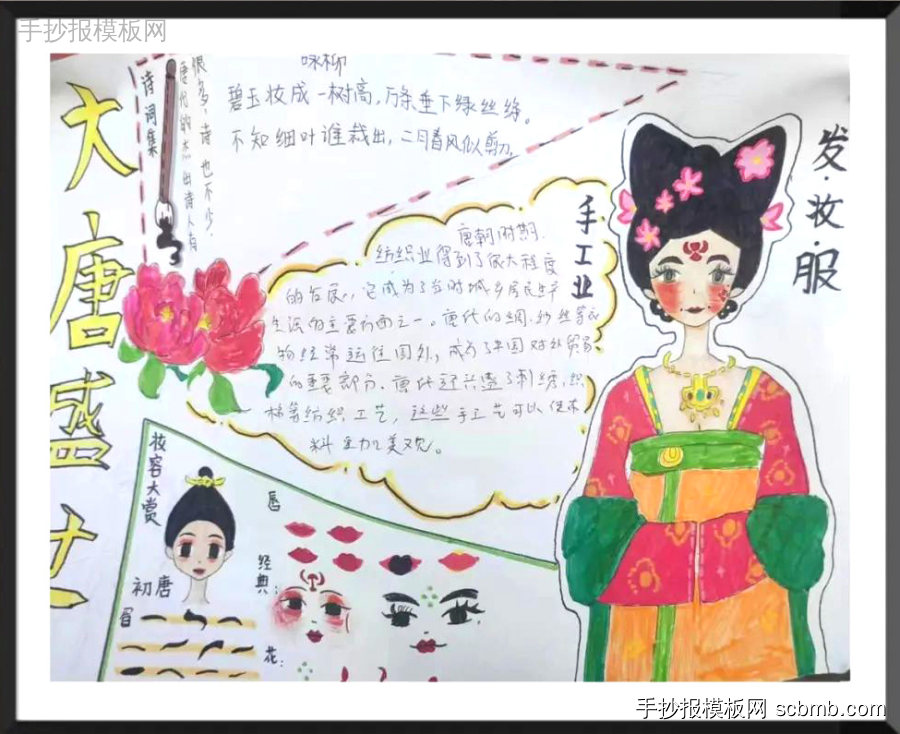 手抄报模板网
大唐盛世
诗词集
唐代的杰出诗人有
很多,诗也不少,
咏柳
碧玉妆成一树高,万条垂下绿丝绦。
不知细叶谁裁出,二月春风似剪刀。
发·妆·服
手工业
唐朝时期,
纺织业得到了很大程度
的发展,它成为了当时城乡居民生产
生活的主要方面之一。唐代的绸、纱丝等
物经常运往国外,成为了中国对外贸易
的重要部分。唐代还兴盛了刺绣,织
锦等纺织工艺,这些手工艺可以使布
料更加美观。
妆容大赏
初唐
眉
唇
经典:
花:
手抄报模板网 scbmb.com